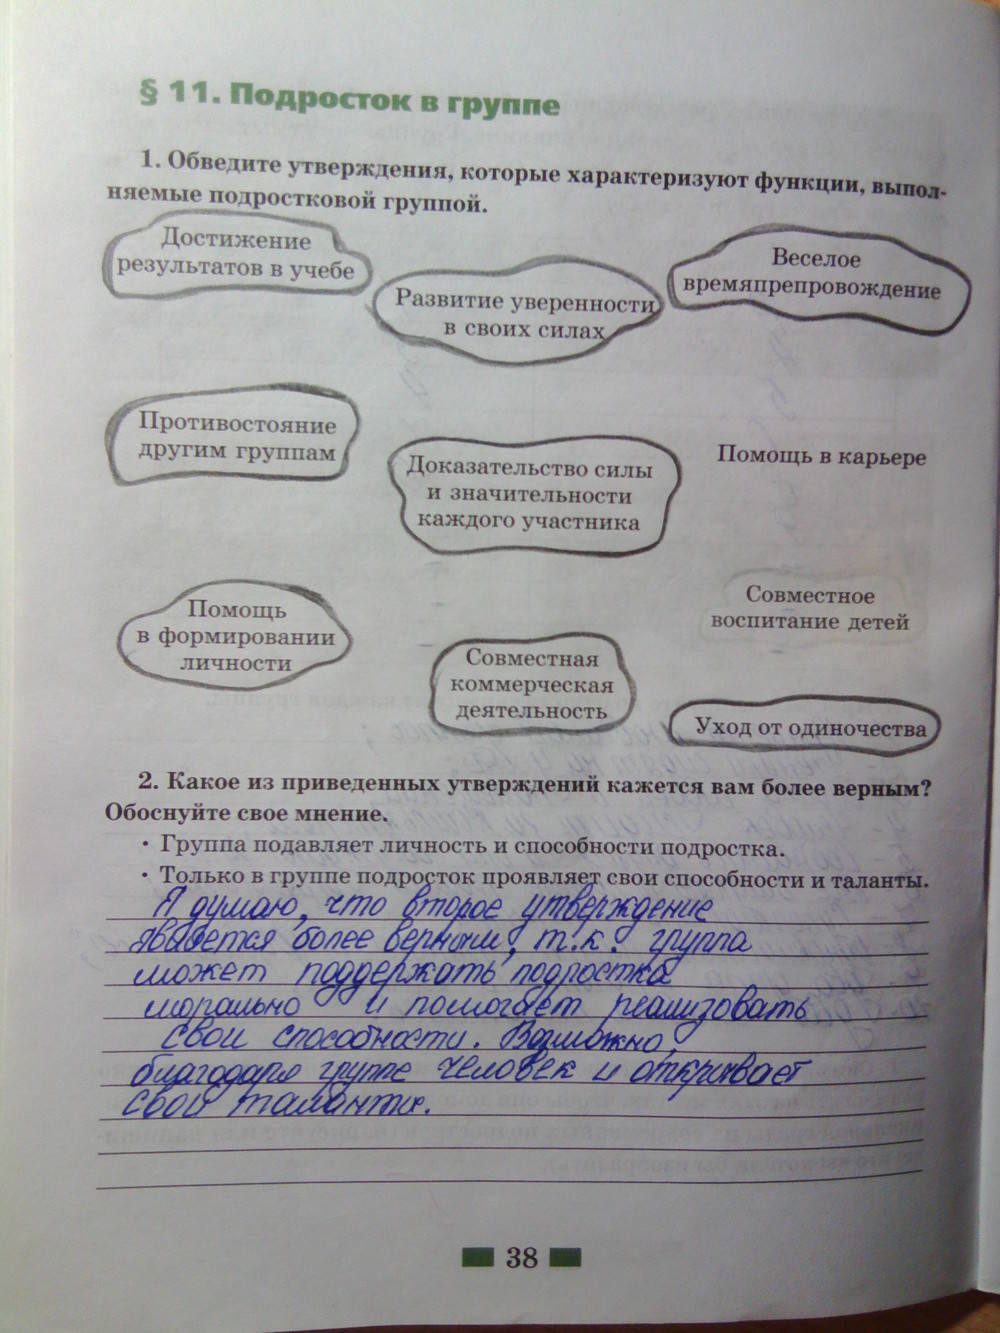 § 11. Подросток в группе
1. Обведите утверждения, которые характеризуют функции, выпол-
няемые подростковой группой.
Достижение
результатов в учебе
Развитие уверенности
в своих силах
Веселое
времяпрепровождение
Противостояние
другим группам
Доказательство силы
и значительности
каждого участника
Помощь в карьере
Помощь
в формировании
личности
Совместная
коммерческая
деятельность
Совместное
воспитание детей
Уход от одиночества
2. Какое из приведенных утверждений кажется вам более верным?
Обоснуйте свое мнение.
• Группа подавляет личность и способности подростка.
• Только в группе подросток проявляет свои способности и таланты.
Я думаю, что второе утверждение
является более верным, т.к. группа
может поддержать подростка
морально и помогает реализовать
свои способности. Возможно,
благодаря группе человек и открывает
свои таланты.
38